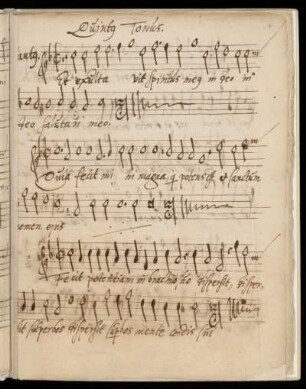 Quintꝰ Tonus.
Et exulta vit spiritus meꝰ in deo in
deo salutari meo.
Quia fecit mi hi magna q potens est et sanctum
nomen eius
Fecit potentiam in brachio suo dispersit, disper,
sit superbos dispersit supbos mente cordis sui